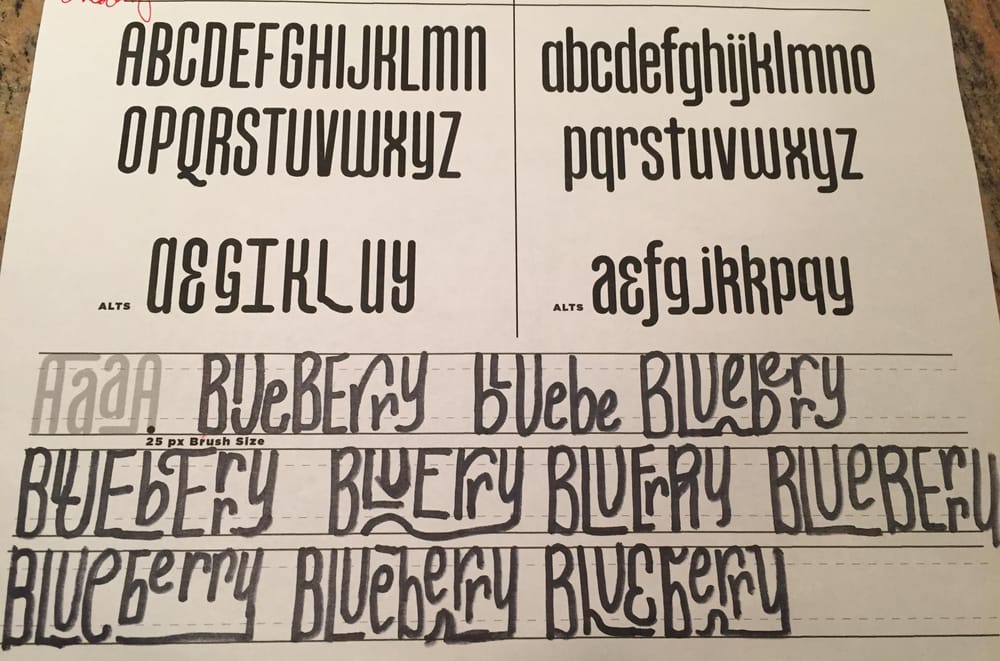 ABCDEFGHIJKLMN
OPQRSTUVWXYZ
abcdefghijklmno
pqrstuvwxyz
ALTS aEGIKLUY
ALTS aɛfgjkkpqy
AaaA BlUeBErry blUebe BLUeberry
25 px Brush Size
BLUEbErry BLUErry BLUErRy BLUeBErry
BLUeberry BLUeberry BLUEberry